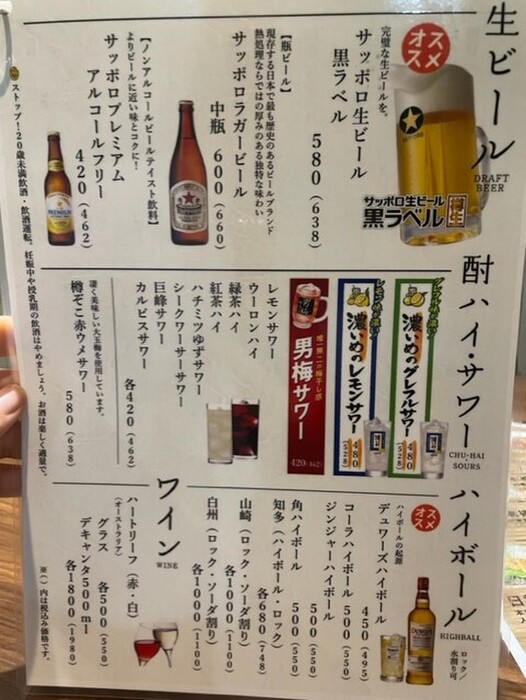 生ビール
DRAFT
BEER
オススメ
完璧な生ビールを。
サッポロ生ビール
黒ラベル
580 (638)
サッポロ生ビール
黒ラベル
樽生
【瓶ビール】
現存する日本で最も歴史のあるビールブランド
熱処理ならではの厚みのある独特な味わい
サッポロラガービール
中瓶 600 (660)
【ノンアルコールビールテイスト飲料】
よりビールに近い味とコクに!
サッポロプレミアム
アルコールフリー
420 (462)
酎ハイ・サワー
CHU-HAI
・
SOURS
濃いめのグレフルサワー
480
(528)
濃いめのレモンサワー
480
(528)
唯一無二の梅干し感
男梅サワー
420 (462)
レモンサワー
ウーロンハイ
緑茶ハイ
紅茶ハイ
ハチミツゆずサワー
シークワーサーサワー
巨峰サワー
カルピスサワー
各420 (462)
凄く美味しい大玉梅を使用しています。
樽ぞこ赤ウメサワー
580 (638)
ハイボール
HIGHBALL
オススメ
ロック/
水割り可
ハイボールの起源
デュワーズハイボール
450 (495)
コーラハイボール 500 (550)
ジンジャーハイボール
500 (550)
角ハイボール 500 (550)
知多 (ハイボール・ロック)
各680 (748)
山崎 (ロック・ソーダ割り)
各1000 (1100)
白州 (ロック・ソーダ割り)
各1000 (1100)
ワイン
WINE
ハートリーフ (赤・白)
(オーストラリア)
グラス 各500 (550)
デキャンタ500ml
各1800 (1980)
ストップ!20歳未満飲酒・飲酒運転。妊娠中や授乳期の飲酒はやめましょう。お酒は楽しく適量で。
※( )内は税込み価格です。